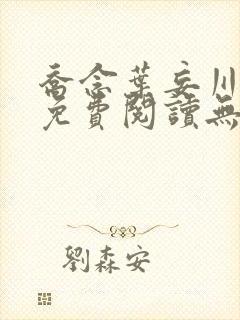 喬念葉妄川
免費閱讀無
劉森安